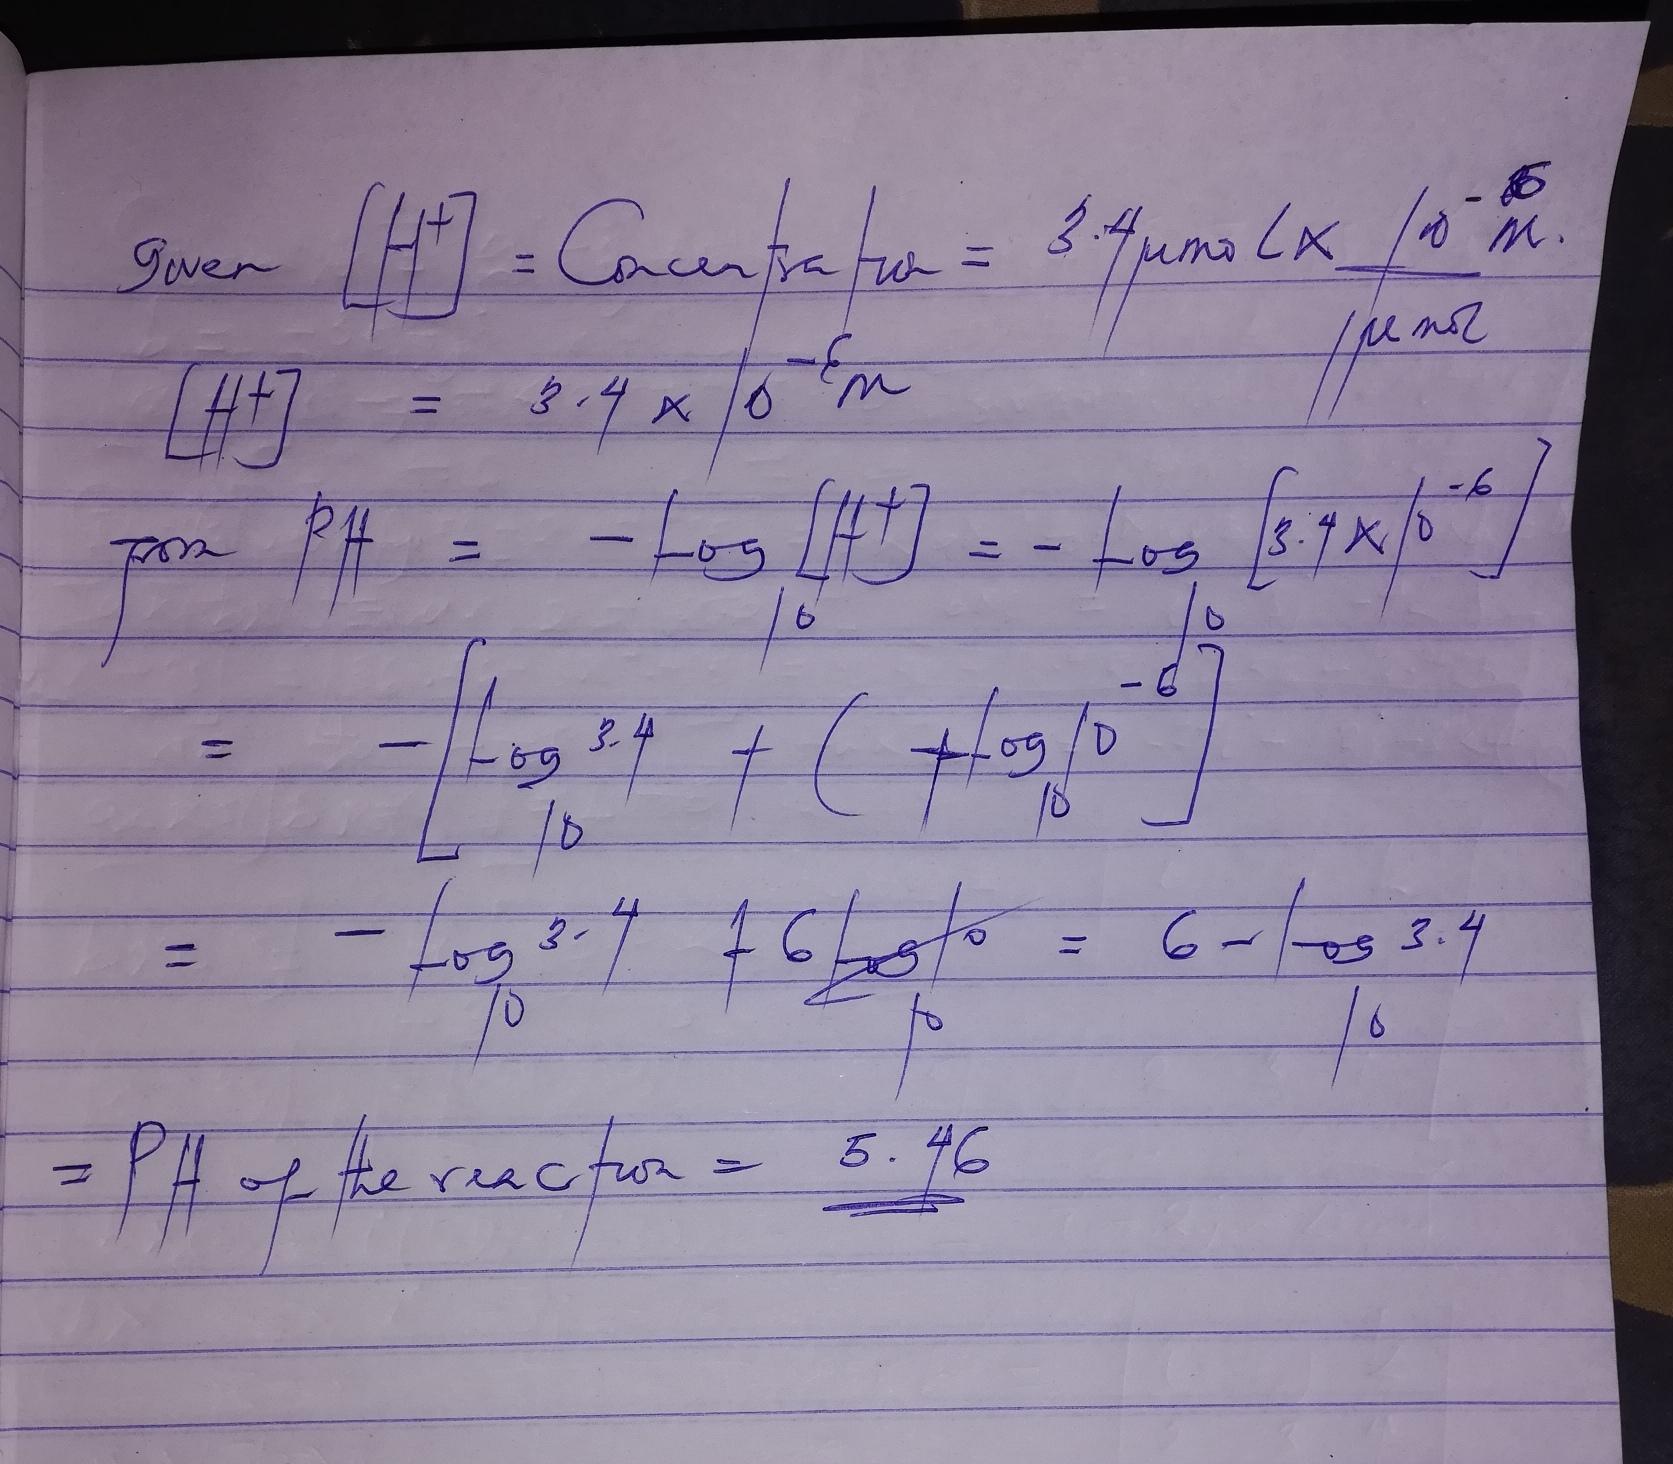 Given [H+] = Concentration = 3.4 μmol x 10^-6 M.
/ 1 μmol
[H+] = 3.4 x 10^-6 M
from PH = - Log₁₀ [H+] = - Log₁₀ [3.4 x 10^-6]
= - [Log₁₀ 3.4 + ( + Log₁₀ 10^-6 ]
= - Log₁₀ 3.4 + 6 Log₁₀ 10 = 6 - Log₁₀ 3.4
= PH of the reaction = 5.46